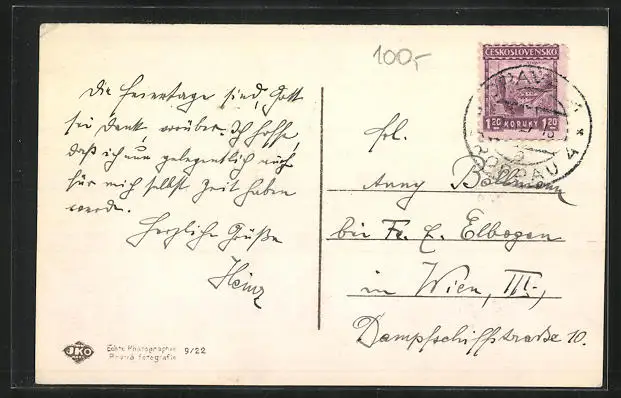 100,-
ČESKOSLOVENSKO
1.20 KORUNY 1.20
OPAVA 4
TROPPAU 4
Die Feiertage sind, Gott
sei Dank vorüber. Ich hoffe,
daß ich nun gelegentlich auch
für mich selbst Zeit haben
werde.
Herzliche Grüße
Heinz
Frl.
Anny Bollmann
bei Fr. E. Elbogen
in Wien, III.,
Dampfschiffstraße 10.
JKO
Echte Photographie 9/22
Pravá fotografie